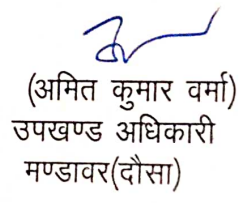 (अमित कुमार वर्मा)
उपखण्ड अधिकारी
मण्डावर(दौसा)